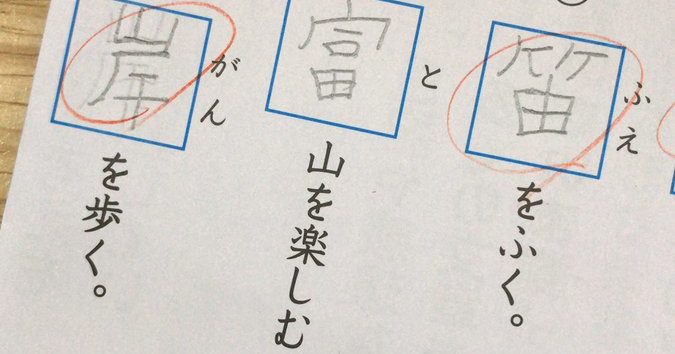 ふえ
笛をふく。
と
富山を楽しむ
がん
岸を歩く。